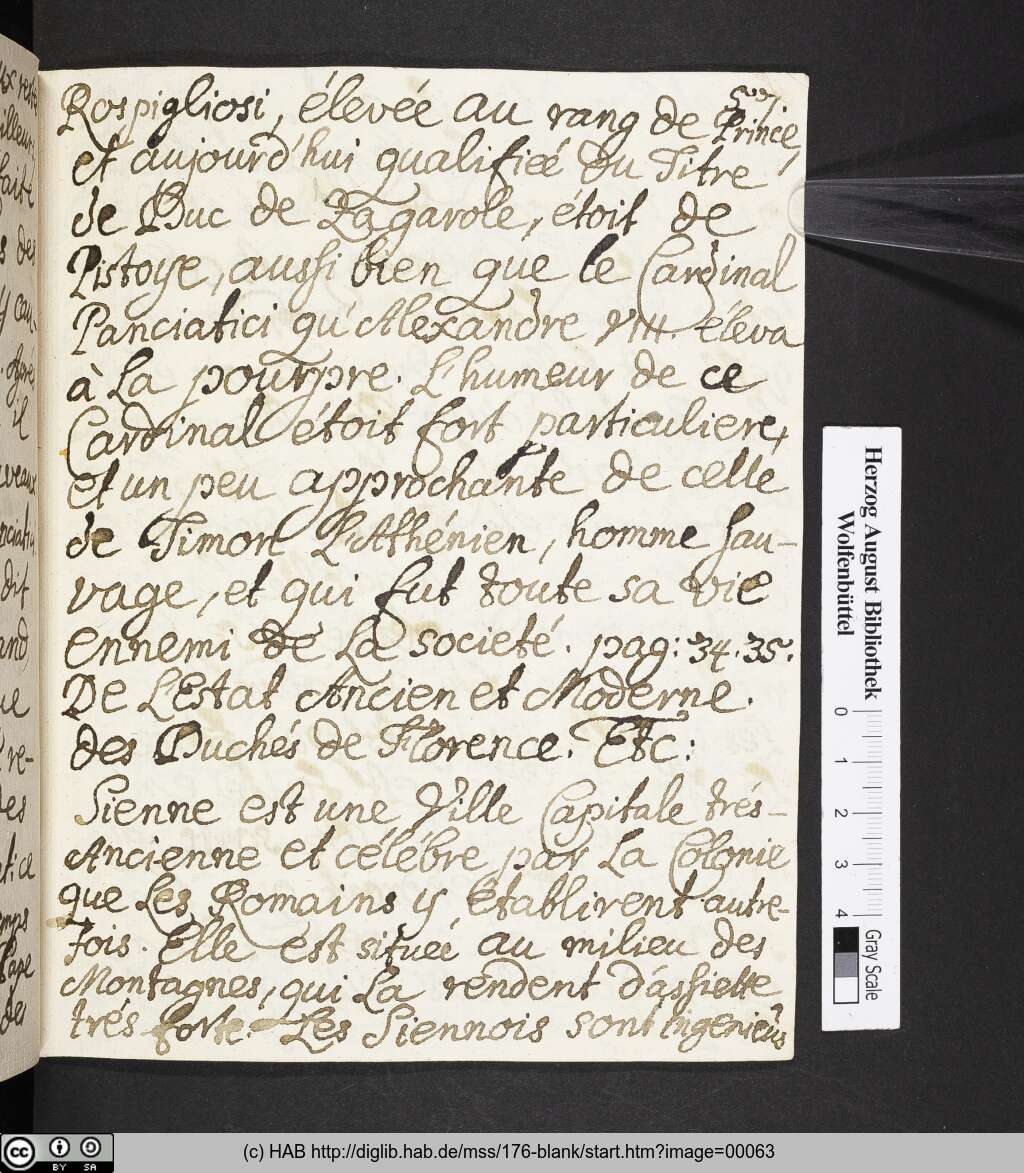 Rospigliosi, élevée au rang de Prince,
et aujourd'hui qualifieé du Titre
de Duc de Zagarole, étoit de
Pistoye, aussi bien que le Cardinal
Panciatici qu'Alexandre VIII. éleva
à La pourpre. L'humeur de ce
Cardinal étoit fort particuliere,
et un peu approchante de celle
de Timon L'Athénien, homme sau-
vage, et qui fut toute sa vie
ennemi de La societé. pag: 34. 35.
De L'Estat Ancien et Moderne.
des Duchés de Florence. Etc:
Sienne est une Ville Capitale trés-
Ancienne et célébre par La Colonie
que Les Romains y Etablirent autre-
fois. Elle est située au milieu des
Montagnes, qui La rendent d'assiette
trés forte. Les Siennois sont ingenieus
Herzog August Bibliothek
Wolfenbüttel
0 1 2 3 4
Gray Scale
cc BY SA
(c) HAB http://diglib.hab.de/mss/176-blank/start.htm?image=00063